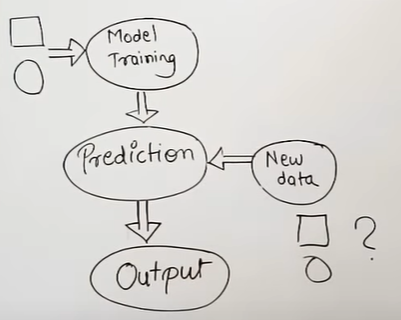 Model
Training
Prediction
New
data
?
Output